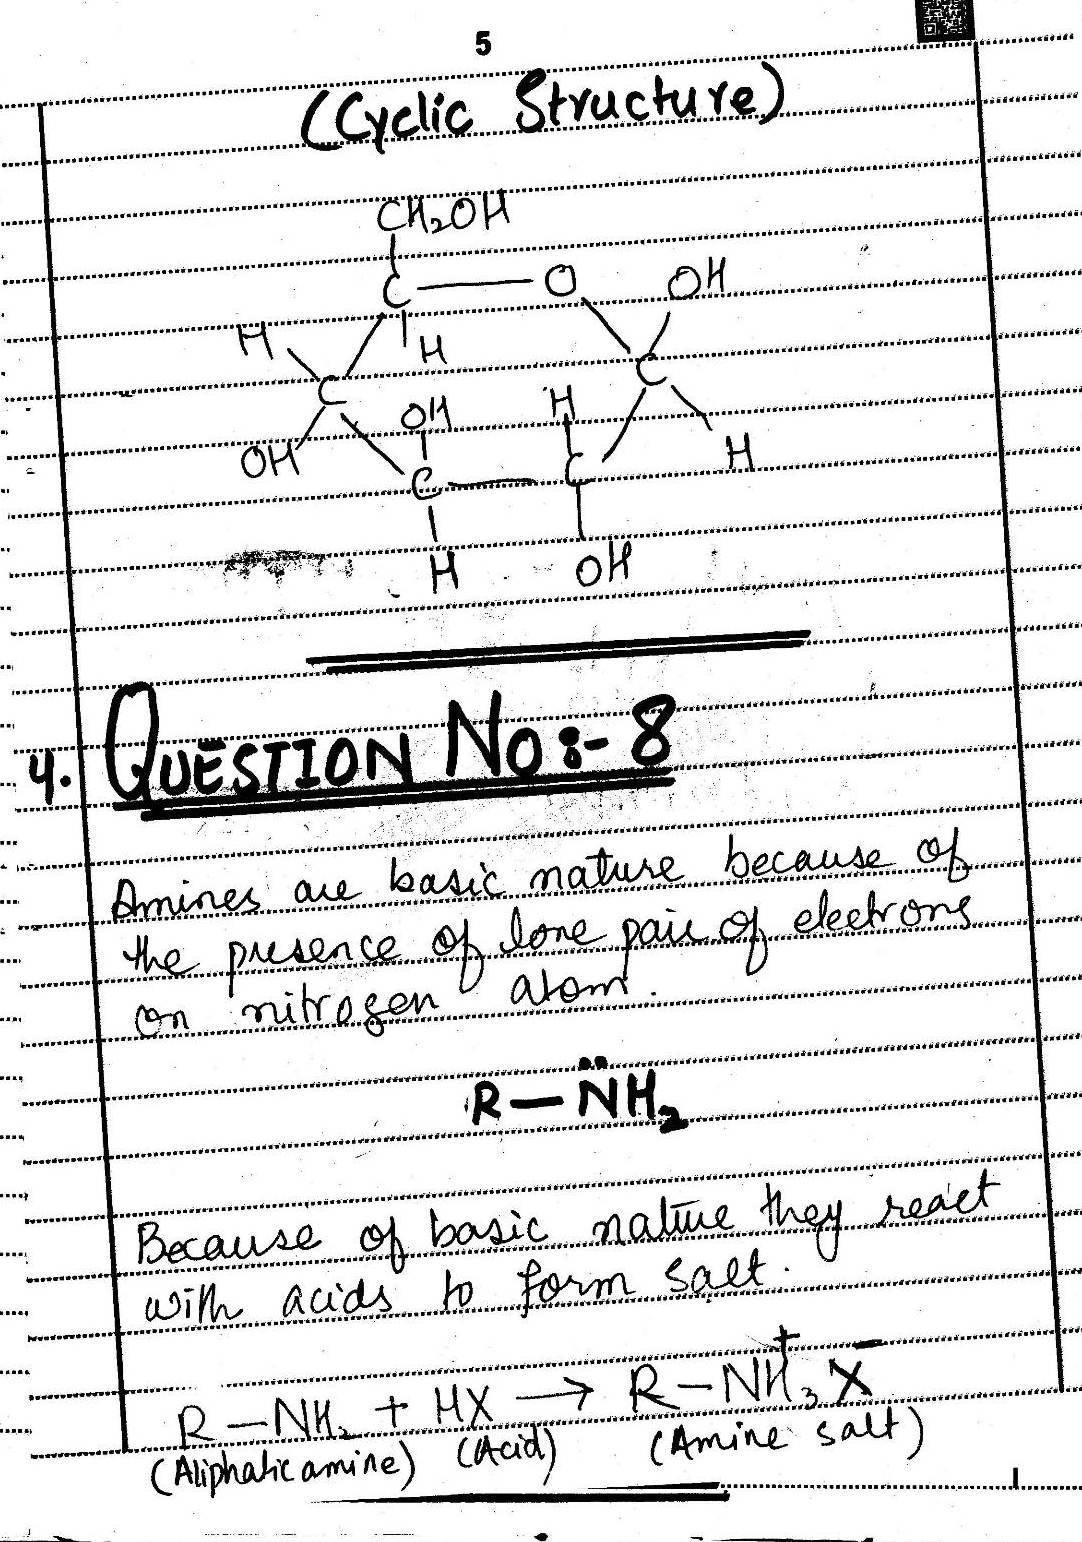 5
(Cyclic Structure)
CH₂OH
C — O OH
H H
C C
OH H
OH H
C — C
H OH
4. QUESTION NO:- 8
Amines are basic nature because of
the presence of lone pair of electrons
on nitrogen atom.
R — N̈H₂
Because of basic nature they react
with acids to form salt.
R — NH₂ + HX → R — NH₃⁺ X⁻
(Aliphatic amine) (Acid) (Amine salt)